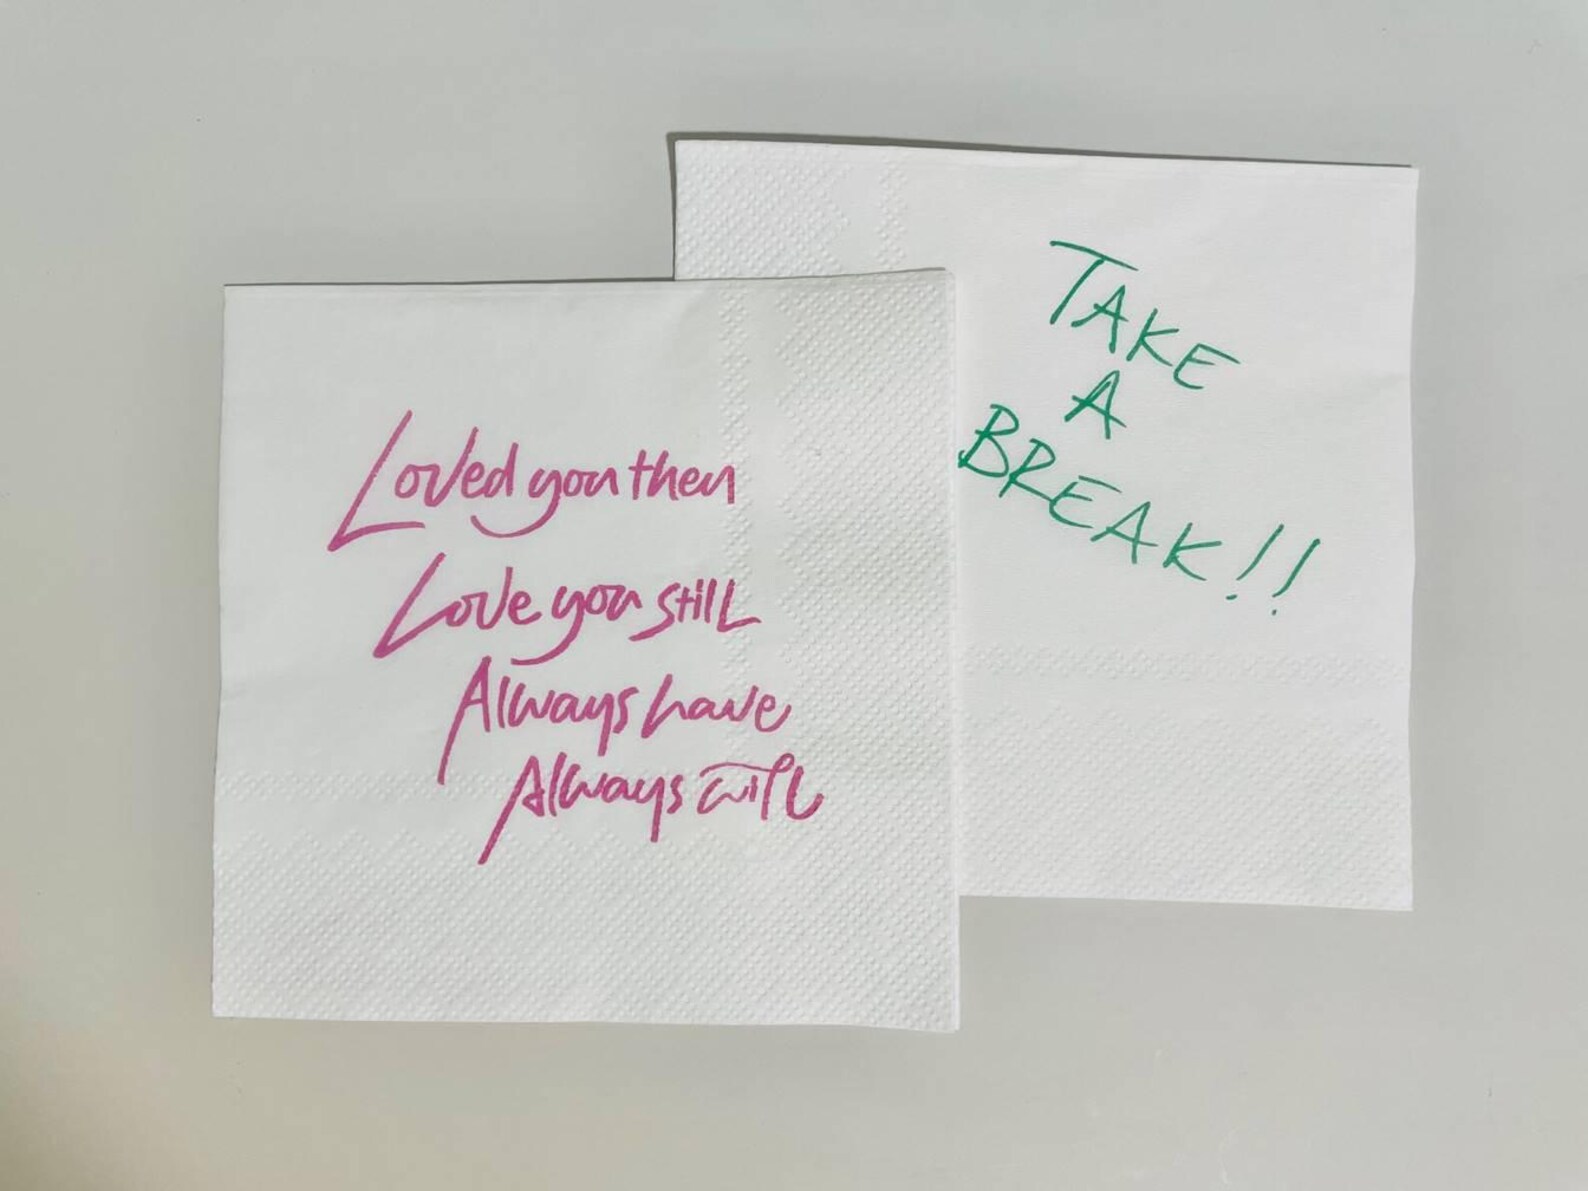 Loved you then
Love you still
Always have
Always will
TAKE
A
BREAK!!